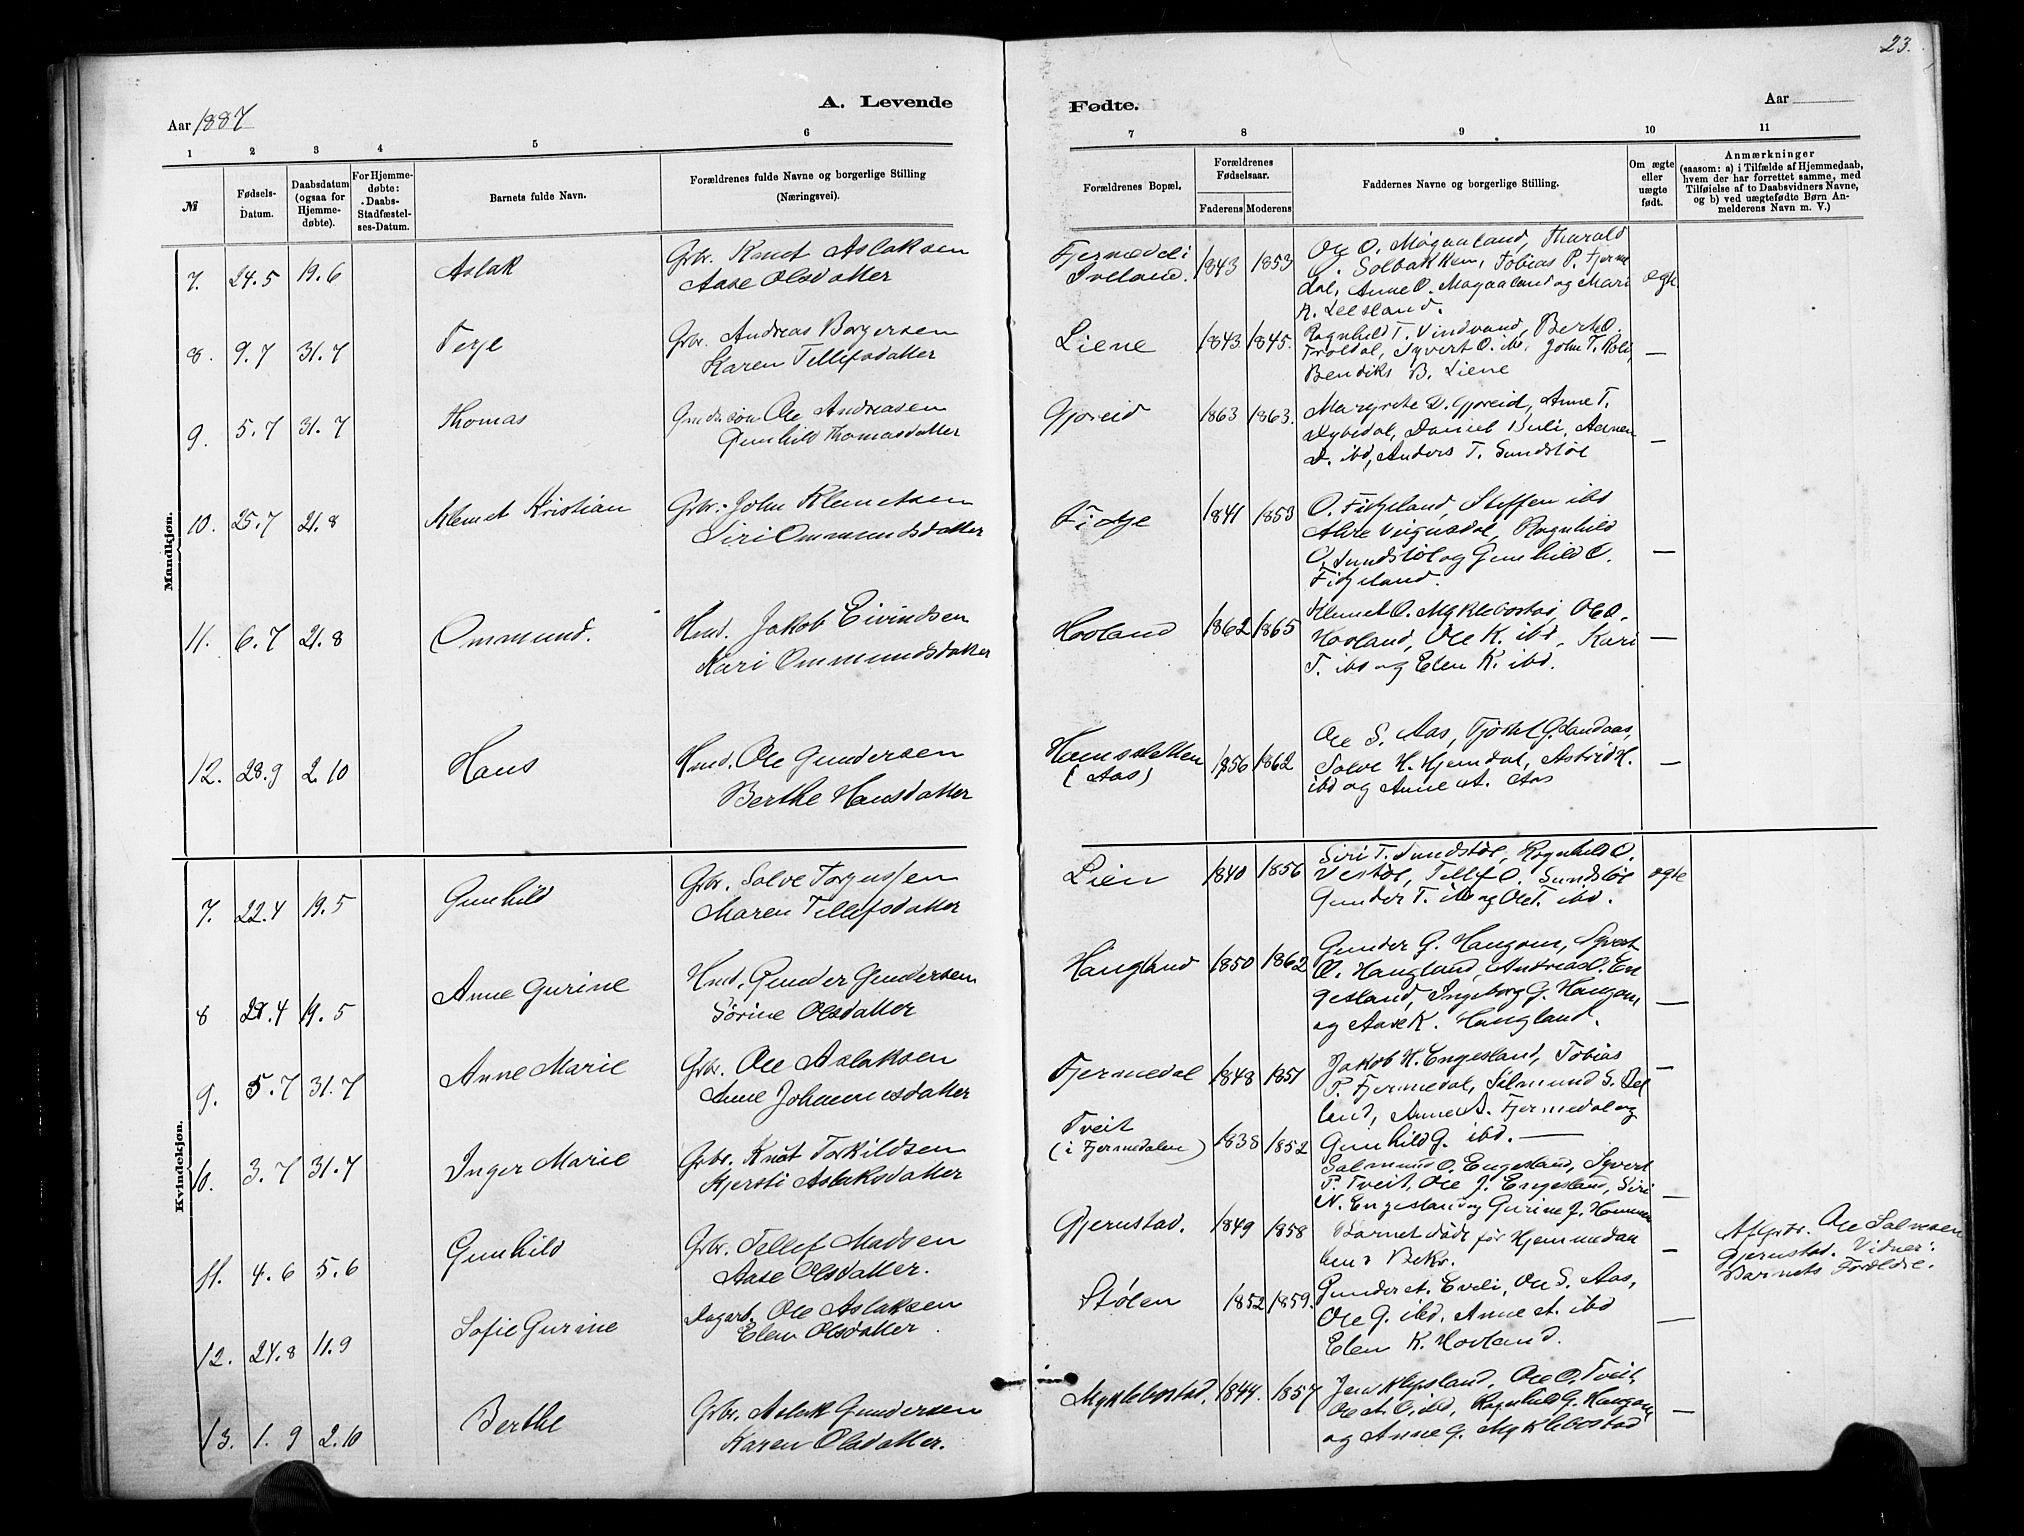 23.
A. Levende
Fødte.
Aar 1887
Aar
1 2 3 4 5 6 7 8 9 10 11
№
Fødsels-
Datum.
Daabsdatum
(ogsaa for
Hjemme-
døbte).
For Hjemme-
døbte:
Daabs-
Stadfæstel-
ses-Datum.
Barnets fulde Navn.
Forældrenes fulde Navne og borgerlige Stilling
(Næringsvei).
Forældrenes Bopæl.
Forældrenes
Fødselsaar.
Faderens
Moderens
Faddernes Navne og borgerlige Stilling.
Om ægte
eller
uægte
født.
Anmærkninger
(saasom: a) i Tilfælde af Hjemmedaab,
hvem der har forrettet samme, med
Tilføielse af to Daabsvidners Navne,
og b) ved uægtefødte Børn An-
melderens Navn m. V.)
Mandkjøn.
7. 24.5 19.6 Aslak
Grbr. Knut Aslaksen
Aase Olsdatter
Fjermedal i
Iveland.
1843 1853
Ole O. Møgaaland, Tharald
O. Solbakken, Tobias P. Fjerme
dal, Anne O. Møgaaland og Mari
K. Leesland.
ægte
8. 9.7 31.7 Terje
Grbr. Andreas Borgersen
Karen Tellefsdatter
Liene
1843. 1845.
Ragnhild T. Vindvand, Bert O.
Troldal, Syvert O. ibd, John T. Boli,
Bendiks B. Liene
—
9. 5.7 31.7 Thomas
Grmdssøn Ole Andreasen
Gunhild Thomasdatter
Gjoreid
1863 1863.
Margrete D. Gjoreid, Anne T.
Dybedal, Daniel Birli, Aanen
D. ibd, Anders T. Sundstøl
—
10. 25.7 21.8 Klemet Kristian
Grbr. John Klemetsen
Siri Ommundsdatter
Fidje
1841 1853
O. Fidjeland, Steffen ibd
Alve Veigusdal, Ragnhild
O. Sundstøl og Gunhild O.
Fidjeland.
—
11. 6.7 21.8 Ommund.
Hmd. Jakob Eivindsen
Kari Ommundsdatter
Hovland
1862 1865
Klemet O. Myklebostad, Ole O.
Hovland, Ole K. ibd, Kari
T. ibd og Elen K. ibd.
—
12. 28.9 2.10 Hans
Hmd. Ole Gundersen
Berthe Hansdatter
Hamsletten
(Aas)
1856 1862
Ole S. Aas, Tjøstel G. Landaas,
Salve H. Hjemdal, Astrid H.
ibd og Anne A. Aas
—
Kvindekjøn.
7. 22.4 19.5 Gunhild
Grbr. Salve Torgussen
Maren Tellefsdatter
Lien
1840 1856
Siri T. Sundstøl, Ragnhild O.
Vestøl, Tellef O. Sundstøl
Gunder T. ibd og Ole T. ibd.
ægte
8 28.4 19.5 Anne Gurine
Hmd. Gunder Gundersen
Sørine Olsdatter
Haugland
1850 1862
Gunder G. Haugom, Syvert
O. Haugland, Andreas O. En
gesland, Ingeborg G. Haugom
og Aase K. Haugland.
—
9. 5.7 31.7 Anne Marie
Grbr. Ole Aslaksen
Anne Johannesdatter
Fjermedal
1848 1851
Jakob H. Engesland, Tobias
P. Fjermedal, Salmund S.
land, Anne A. Fjermedal og
Gunhild G. ibd. —
—
10. 3.7 31.7 Inger Marie
Grbr. Knut Torkildsen
Kjersti Aslaksdatter
Tveit
(i Fjermedalen)
1838 1852
Salmund O. Engesland, Syvert
P. Tveit, Ole J. Engesland, Siri
N. Engesland og Gurine J.
—
11. 4.6 5.6 Gunhild
Grbr. Tellef Madsen
Aase Olsdatter.
Gjerustad.
1849 1858
Barnet døde før Hjemmedaa
bens Bekr.
—
Af Grbr. Ole Salvesen
Gjerustad. Vidner:
Barnets Forældre.
12. 24.8 11.9 Sofie Gurine
Dagarb. Ole Aslaksen
Elen Olsdatter.
Stølen
1852 1859.
Gunder A. Eveli, Ole S. Aas,
Ole G. ibd, Anne A. ibd
Elen K. Hovland.
—
13. 1.9 2.10 Berthe
Grbr. Aslak Gundersen
Karen Olsdatter.
Myklebostad,
1844. 1857
Jens Klepsland, Ole O. Tveit,
Ole A. ibd, Ragnhild G. Haugom
og Anne G. Myklebostad
—